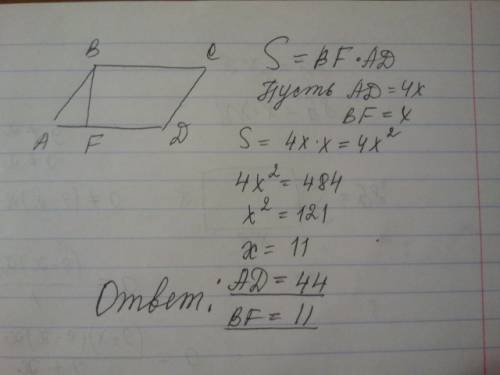 B C
A F D
S = BF · AD
Пусть AD = 4x
BF = x
S = 4x · x = 4x²
4x² = 484
x² = 121
x = 11
Ответ: AD = 44
BF = 11